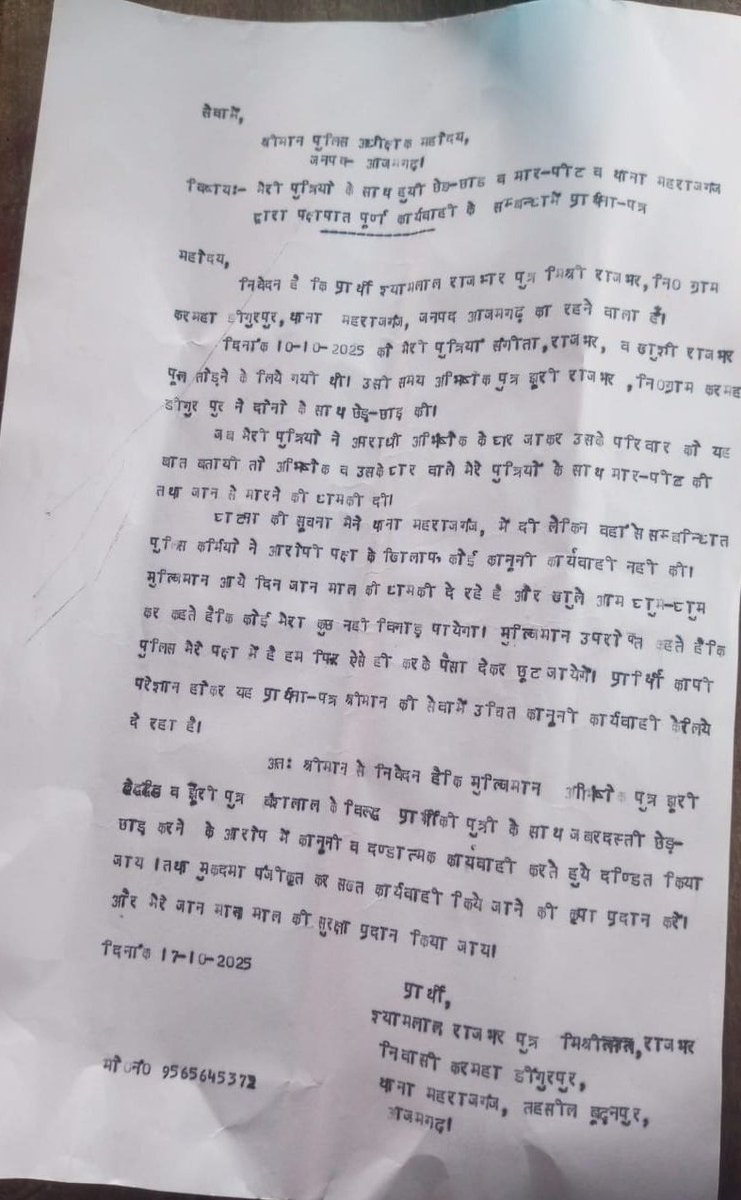 सेवामें,
श्रीमान पुलिस अधीक्षक महोदय,
जनपद- आजमगढ़।
विषय:- मेरी पुत्रियों के साथ हुयी छेड़-छाड व मार-पीट व थाना महराजगंज
द्वारा पक्षपात पूर्ण कार्यवाही के सम्बन्धमें प्रार्थना-पत्र
महोदय,
निवेदन है कि प्रार्थी श्यामलाल राजभार पुत्र मिश्री राजभर, नि० ग्राम
करमहा डींगुरपुर, थाना महराजगंज, जनपद आजमगढ़ का रहने वाला हूँ।
दिनांक 10-10-2025 को मेरी पुत्रियां संगीता, राजभर, व खुशी राजभर
फूल तोड़ने के लिये गयी थी। उसी समय अभिषेक पुत्र झूरी राजभर , नि०ग्राम करमह
डींगुर पुर ने दोनों के साथ छेड़-छाड़ की।
जब मेरी पुत्रियों ने अपराधी अभिषेक के घर जाकर उसके परिवार को यह
बात बतायी तो अभिषेक व उसके घर वाले मेरे पुत्रियों के साथ मार-पीट की
तथा जान से मारने की धामकी दी।
घटना की सूचना मैने थाना महराजगंज, में दी लेकिन वहां से सम्बन्धित
पुलिस कर्मियों ने आरोपी पक्ष के खिलाफ कोई कानूनी कार्यवाही नही की।
मुल्जिमान आये दिन जान माल की धामकी दे रहे है और खुले आम घुम-घुम
कर कहते हैकि कोई मेरा कुछ नही बिगाड़ पायेगा। मुल्जिमान उपरोक्त कहते हैकि
पुलिस मेरे पक्ष में है हम फिर ऐसे ही करके पैसा देकर छूट जायेगें। प्रार्थी काफी
परेशान होकर यह प्रार्थना-पत्र श्रीमान की सेवामें उचित कानूनी कार्यवाही केलिये
दे रहा है।
अत: श्रीमान से निवेदन हैकि मुल्जिमान अभिषेक पुत्र झूरी
व झूरी पुत्र के विरुद्ध प्रार्थीकी पुत्री के साथ जबरदस्ती छेड़-
छाड़ करने के आरोप में कानूनी व दण्डात्मक कार्यवाही करते हुये दण्डित किया
जाय । तथा मुकदमा पंजीकृत कर सख्त कार्यवाही किये जाने की कृपा प्रदान करें।
और मेरे जान माल की सुरक्षा प्रदान किया जाय।
दिनांक 17-10-2025
प्रार्थी,
श्यामलाल राजभर पुत्र मिश्रीलाल, राजभर
निवासी करमहा डींगुरपुर,
थाना महराजगंज, तहसील बूढ़नपुर,
आजमगढ़।
मो०नं० 9565645372